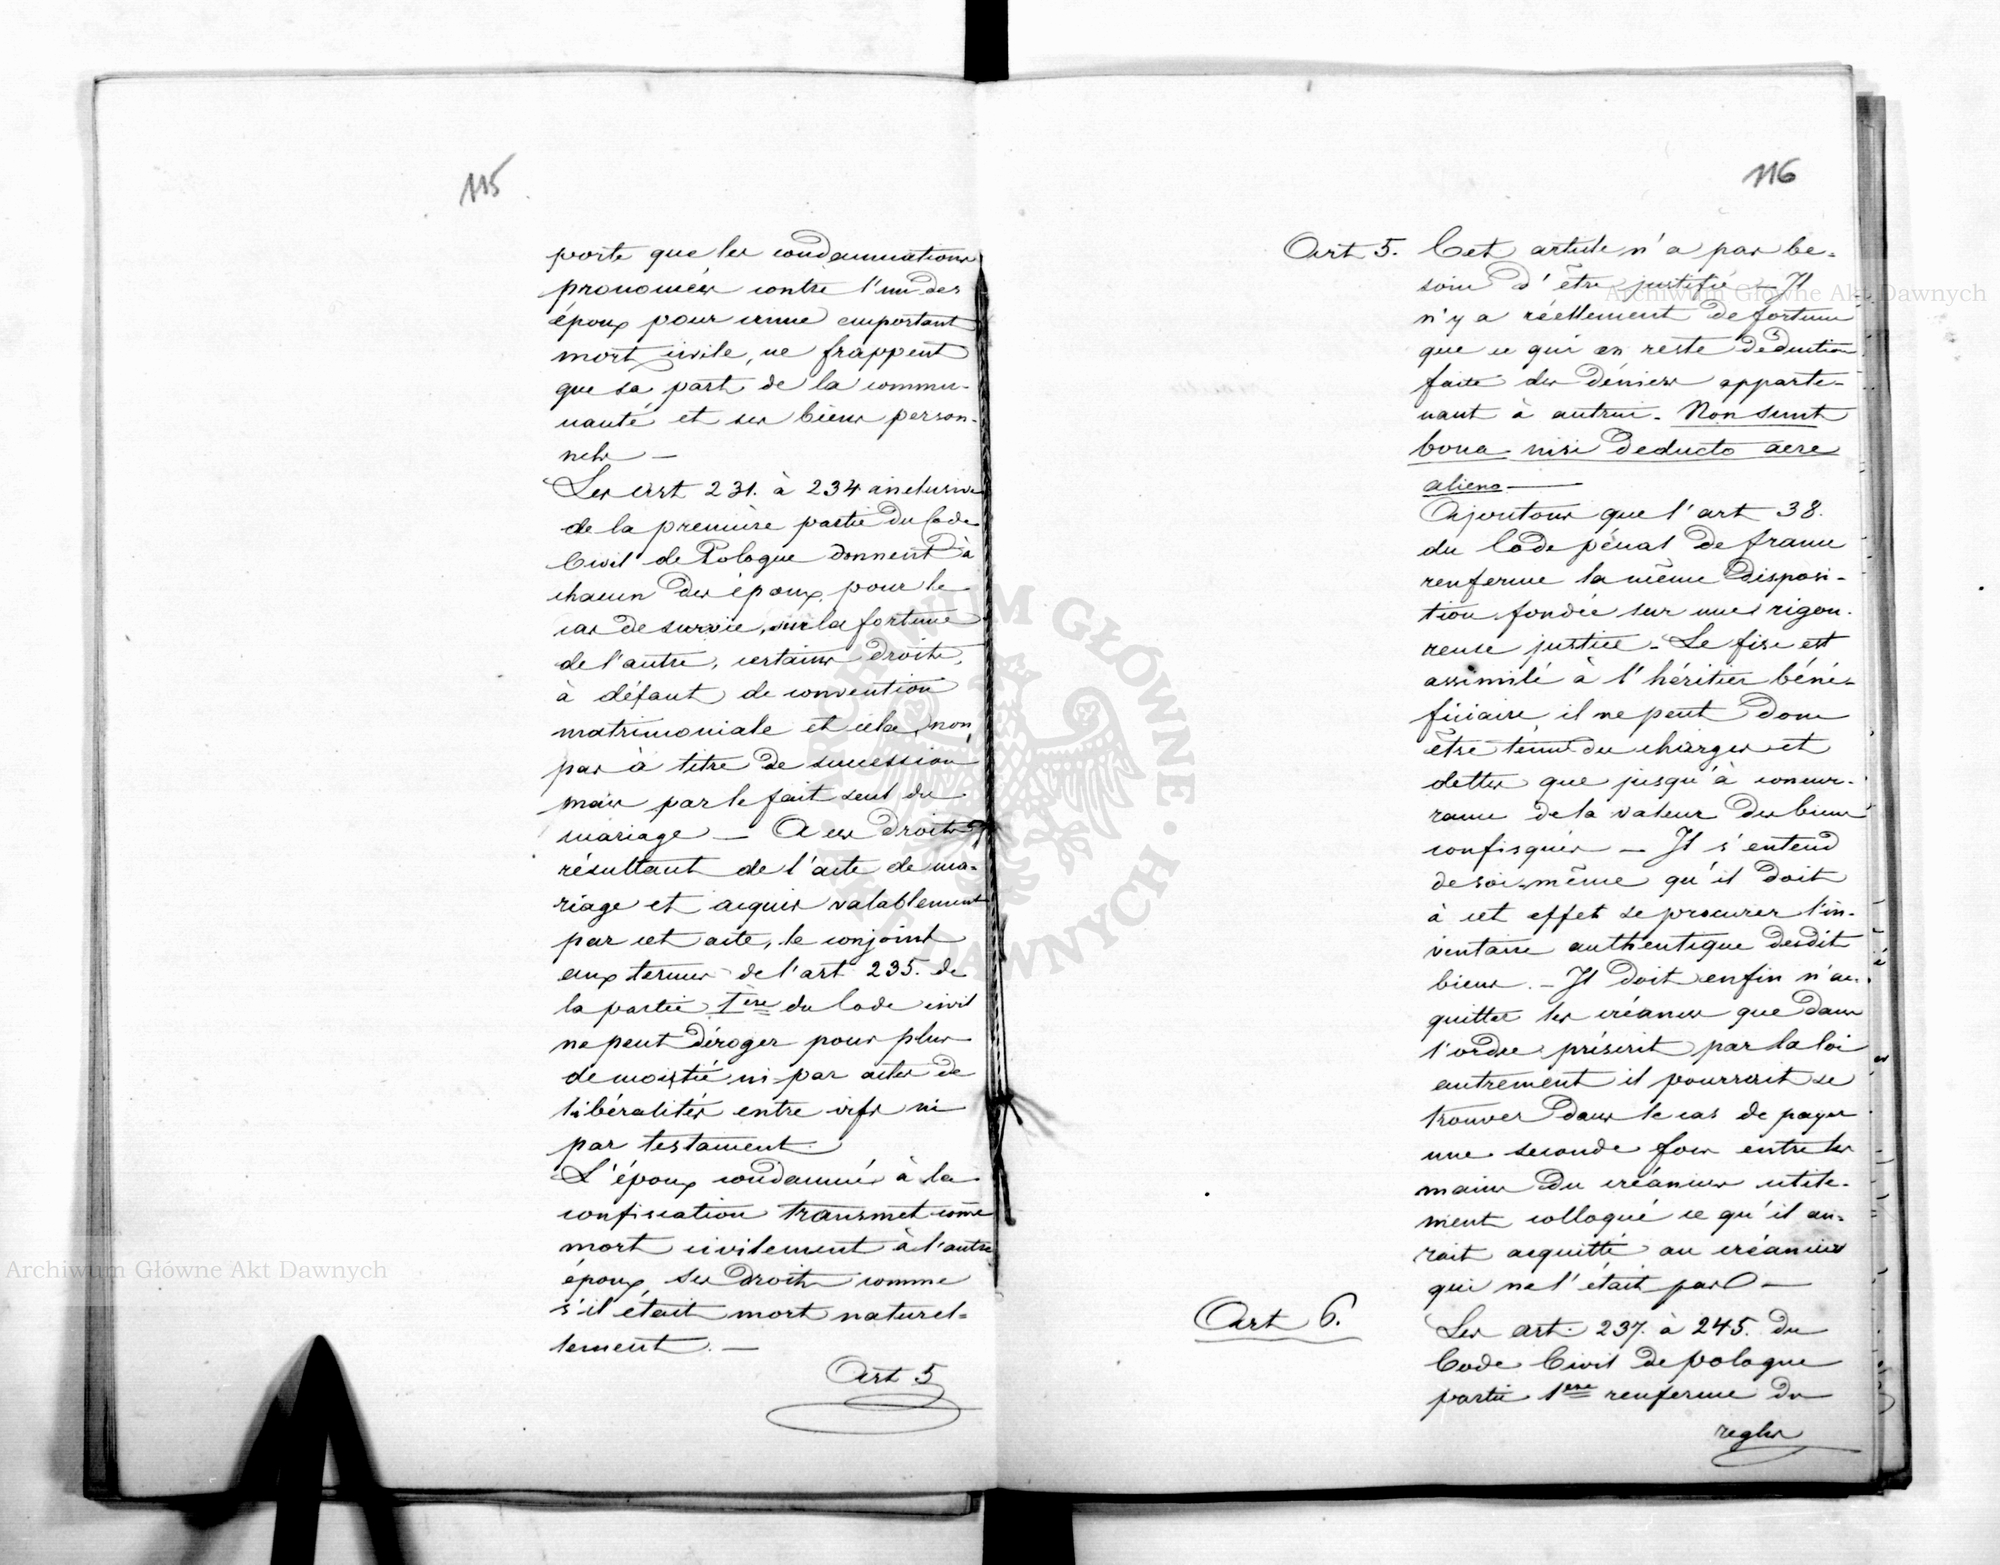 115
porte que les condamnations
prononcées contre l'un des
époux pour crime emportant
mort civile, ne frappent
que sa part de la commu-
nauté et ses biens person-
nels —
Les art 231. à 234 inclusive
de la première partie du Code
Civil de Pologne donnent à
chacun des époux, pour le
cas de survie, sur la fortune
de l'autre, certains droits,
à défaut de convention
matrimoniale et cela, non
pas à titre de succession
mais par le fait seul du
mariage — A ces droits
résultant de l'acte de ma-
riage et acquis valablement
par cet acte, le conjoint
aux termes de l'art 235. de
la partie 1ère du Code civil
ne peut déroger pour plus
de moitié ni par actes de
libéralités entre vifs ni
par testament.
L'époux condamné à la
confiscation transmet comme
mort civilement à l'autre
époux ses droits comme
s'il était mort naturel-
lement. —
Art 5
116
Art 5. Cet article n'a pas be-
soin d'être justifié – Il
n'y a réellement de fortune
que ce qui en reste déduction
faite des déniers apparte-
nant à autrui. Non sunt
bona nisi deducto aere
alieno —
Ajoutons que l'art 38.
du Code pénal de france
renferme la même disposi-
tion fondée sur une rigou-
reuse justice – Le fisc est
assimilé à l'héritier béné-
ficiaire, il ne peut donc
être tenu des charges et
dettes que jusqu'à concur-
rance de la valeur des biens
confisqués — Il s'entend
de soi-même qu'il doit
à cet effet se procurer l'in-
ventaire authentique desdit
biens. – Il doit enfin n'ac-
quitter les créances que dans
l'ordre préscrit par la loi
autrement il pourrait se
trouver dans le cas de payer
une seconde fois entre les
mains du créancier utile-
ment colloqué ce qu'il au-
rait acquitté au créancier
qui ne l'était pas —
Art 6.
Les art. 237. à 245. du
Code Civil de pologne
partie 1ère renferme des
regles
Archiwum Główne Akt Dawnych
Archiwum Główne Akt Dawnych
ARCHIWUM GŁÓWNE AKT DAWNYCH